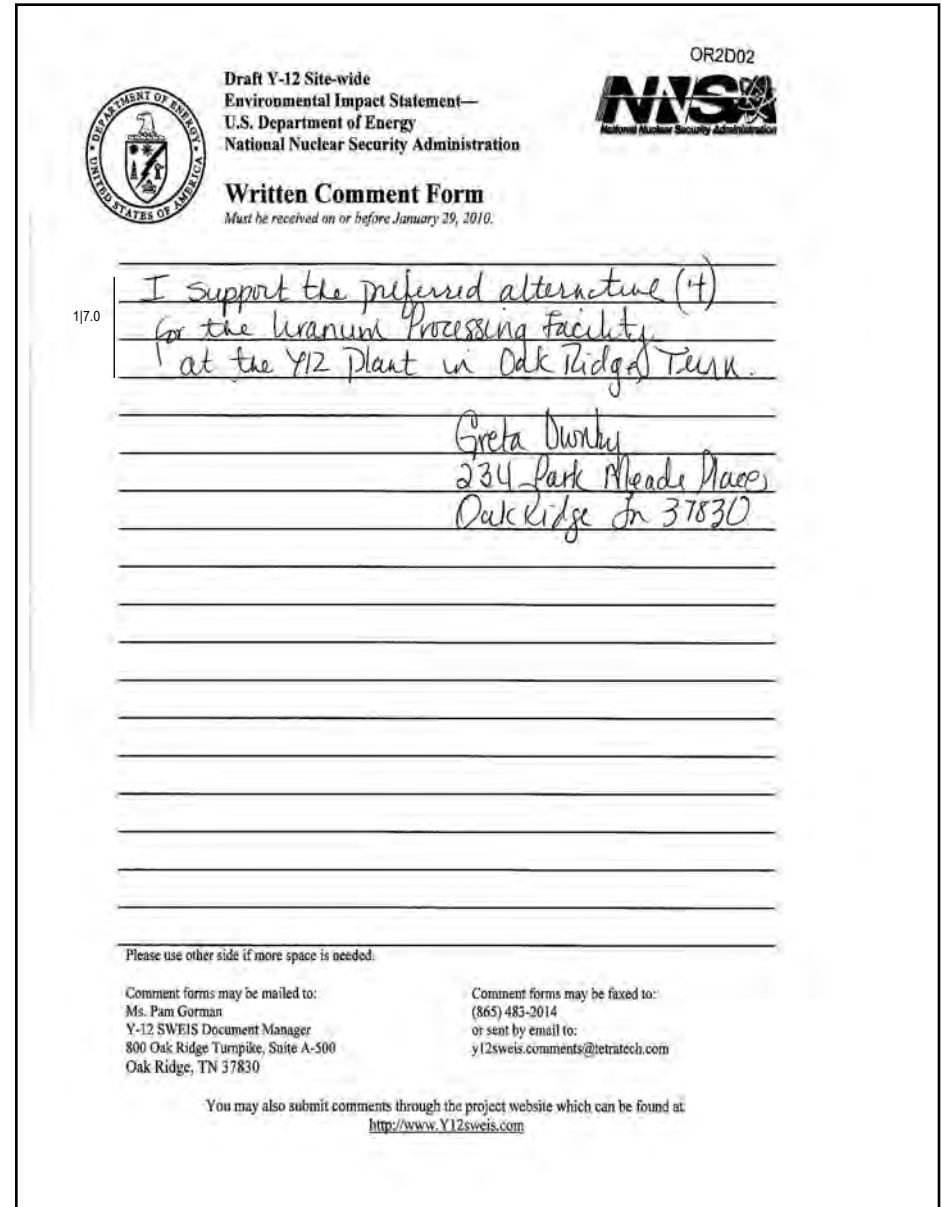 OR2D02
Draft Y-12 Site-wide
Environmental Impact Statement—
U.S. Department of Energy
National Nuclear Security Administration
NNSA
National Nuclear Security Administration
DEPARTMENT OF ENERGY
UNITED STATES OF AMERICA
Written Comment Form
Must be received on or before January 29, 2010.
1|7.0
I support the preferred alternative (4)
for the Uranum Processing Facility
at the Y12 Plant in Oak Ridge, Tenn.
Greta
234 Park Meade Place,
Oak Ridge Tn 37830
Please use other side if more space is needed.
Comment forms may be mailed to:
Ms. Pam Gorman
Y-12 SWEIS Document Manager
800 Oak Ridge Turnpike, Suite A-500
Oak Ridge, TN 37830
Comment forms may be faxed to:
(865) 483-2014
or sent by email to:
y12sweis.comments@tetratech.com
You may also submit comments through the project website which can be found at
http://www.Y12sweis.com